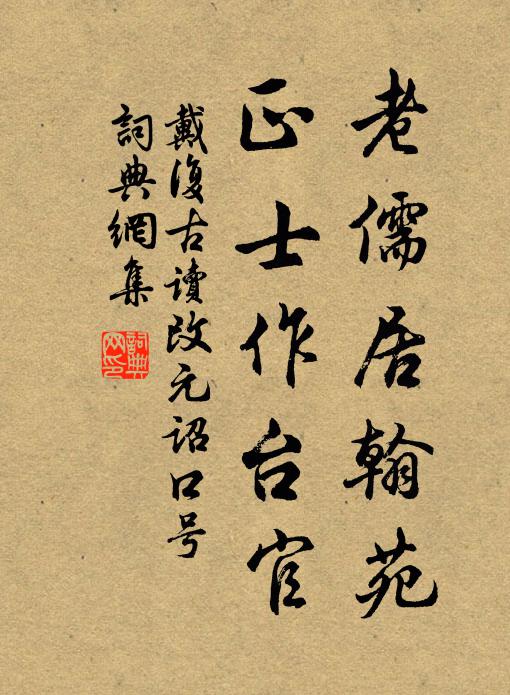 老儒居翰苑
正士作台官
戴復古讀改元詔口号
詞典網集
詞典網印